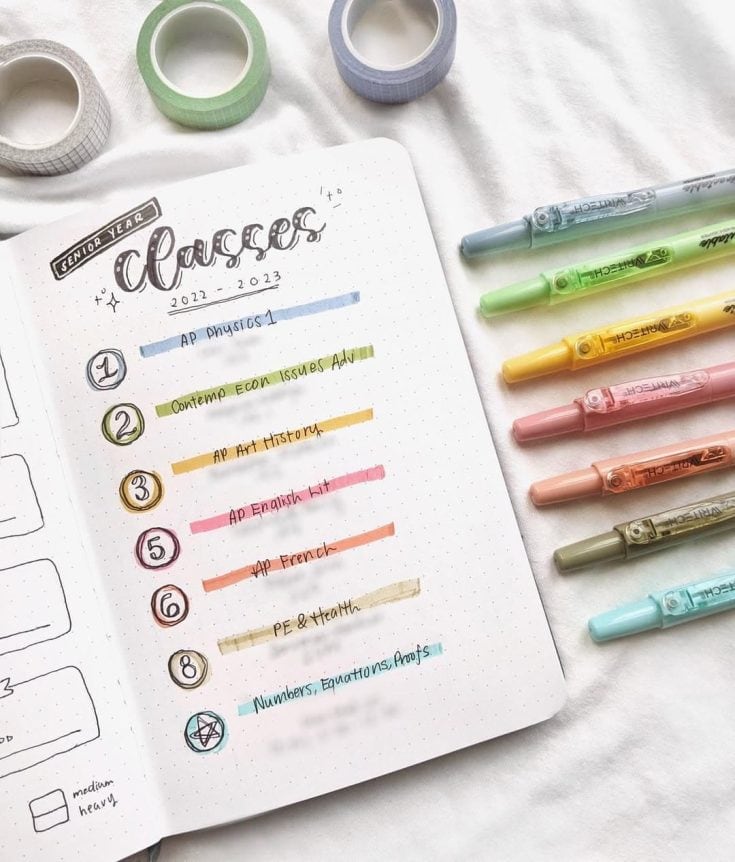 SENIOR YEAR
classes
2022 - 2023
1 AP Physics 1
2 Contemp Econ Issues Adv
3 AP Art History
5 AP English Lit
6 AP French
8 PE & Health
Numbers, Equations, Proofs
medium
heavy
WRITECH
WRITECH
WRITECH
WRITECH
WRITECH
WRITECH
WRITECH